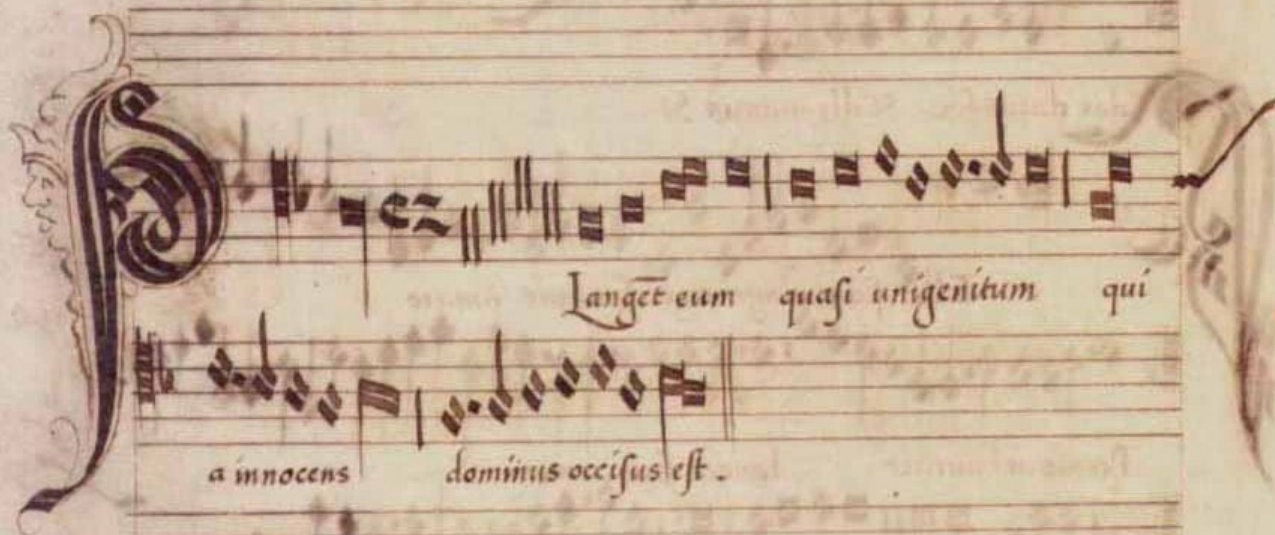 Plangēt eum quasi unigenitum qui
a innocens dominus occisus est.